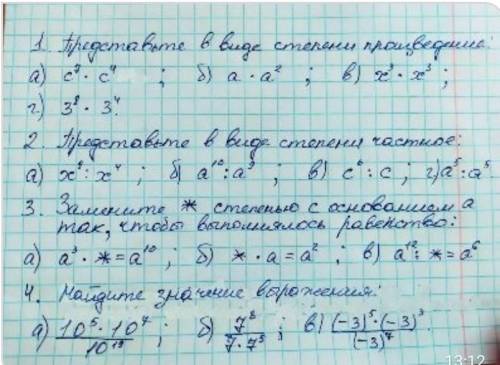 1. Представьте в виде степени произведение:
а) c⁷ · c⁴ ; б) a · a² ; в) x³ · x³ ;
г) 3⁸ · 3⁴.
2. Представьте в виде степени частное:
а) x⁸ : x⁴ ; б) a¹⁰ : a⁹ ; в) c⁶ : c ; г) a⁵ : a⁵.
3. Замените * степенью с основанием a
так, чтобы выполнялось равенство:
а) a³ · * = a¹⁰ ; б) * · a = a² ; в) a¹² : * = a⁶
4. Найдите значение выражения:
а) 10⁵ · 10⁷ / 10¹⁹ ; б) 7⁸ / 7 · 7⁵ ; в) (-3)⁵ · (-3)³ / (-3)⁷
13:12